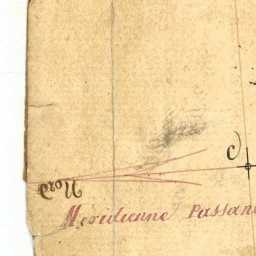 C)
Nord
Meridienne Passan